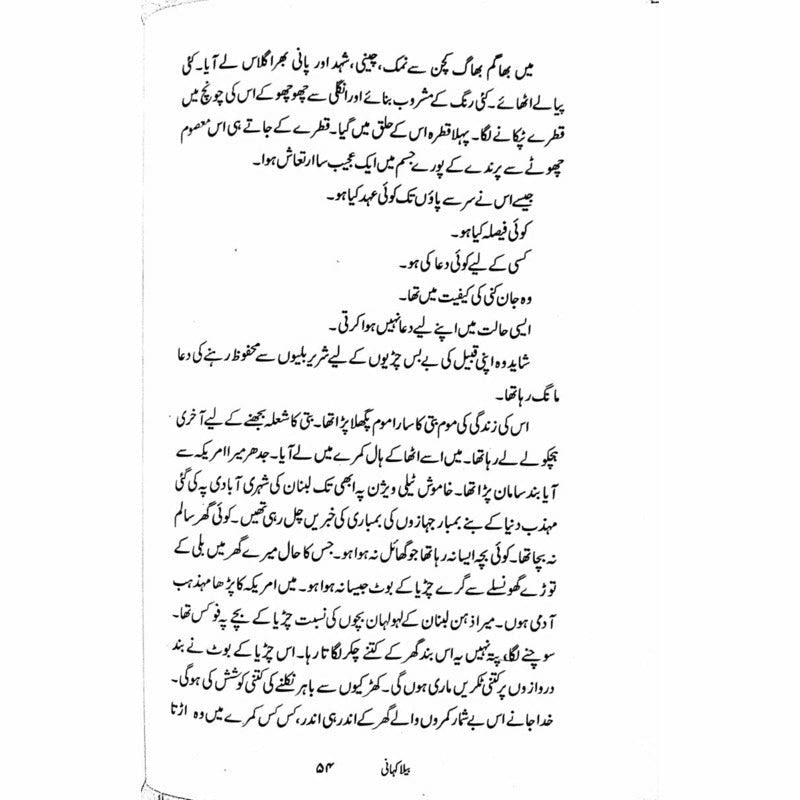 میں بھاگم بھاگ کچن سے نمک، چینی، شہد اور پانی بھرا گلاس لے آیا۔ کئی
پیالے اٹھائے۔ کئی رنگ کے مشروب بنائے اور انگلی سے چھو چھو کے اس کی چونچ میں
قطرے ٹپکانے لگا۔ پہلا قطرہ اس کے حلق میں گیا۔ قطرے کے جاتے ہی اس معصوم
چھوٹے سے پرندے کے پورے جسم میں ایک عجیب سا ارتعاش ہوا۔
جیسے اس نے سر سے پاؤں تک کوئی عہد کیا ہو۔
کوئی فیصلہ کیا ہو۔
کسی کے لیے کوئی دعا کی ہو۔
وہ جان کنی کی کیفیت میں تھا۔
ایسی حالت میں اپنے لیے دعا نہیں ہوا کرتی۔
شاید وہ اپنی قبیل کی بے بس چڑیوں کے لیے شریر بلیوں سے محفوظ رہنے کی دعا
مانگ رہا تھا۔
اس کی زندگی کی موم بتی کا سارا موم پگھلا پڑا تھا۔ بتی کا شعلہ بجھنے کے لیے آخری
ہچکولے لے رہا تھا۔ میں اسے اٹھا کے ہال کمرے میں لے آیا۔ جدھر میرا امریکہ سے
آیا بند سامان پڑا تھا۔ خاموش ٹیلی ویژن پہ ابھی تک لبنان کی شہری آبادی پہ کی گئی
مہذب دنیا کے بنے بمبار جہازوں کی بمباری کی خبریں چل رہی تھیں۔ کوئی گھر سالم
نہ بچا تھا۔ کوئی بچہ ایسا نہ رہا تھا جو گھائل نہ ہوا ہو۔ جس کا حال میرے گھر میں بلی کے
توڑے گھونسلے سے گرے چڑیا کے بوٹ جیسا نہ ہوا ہو۔ میں امریکہ کا پڑھا مہذب
آدمی ہوں۔ میرا ذہن لبنان کے لہولہان بچوں کی نسبت چڑیا کے بچے پہ فوکس تھا۔
سوچنے لگا، پتہ نہیں یہ اس بند گھر کے کتنے چکر لگاتا رہا۔ اس چڑیا کے بوٹ نے بند
دروازوں پر کتنی ٹکریں ماری ہوں گی۔ کھڑکیوں سے باہر نکلنے کی کتنی کوشش کی ہوگی۔
خدا جانے اس بے شمار کمروں والے گھر کے اندر ہی اندر، کس کس کمرے میں وہ اڑتا
بیلا کہانی ۵۴